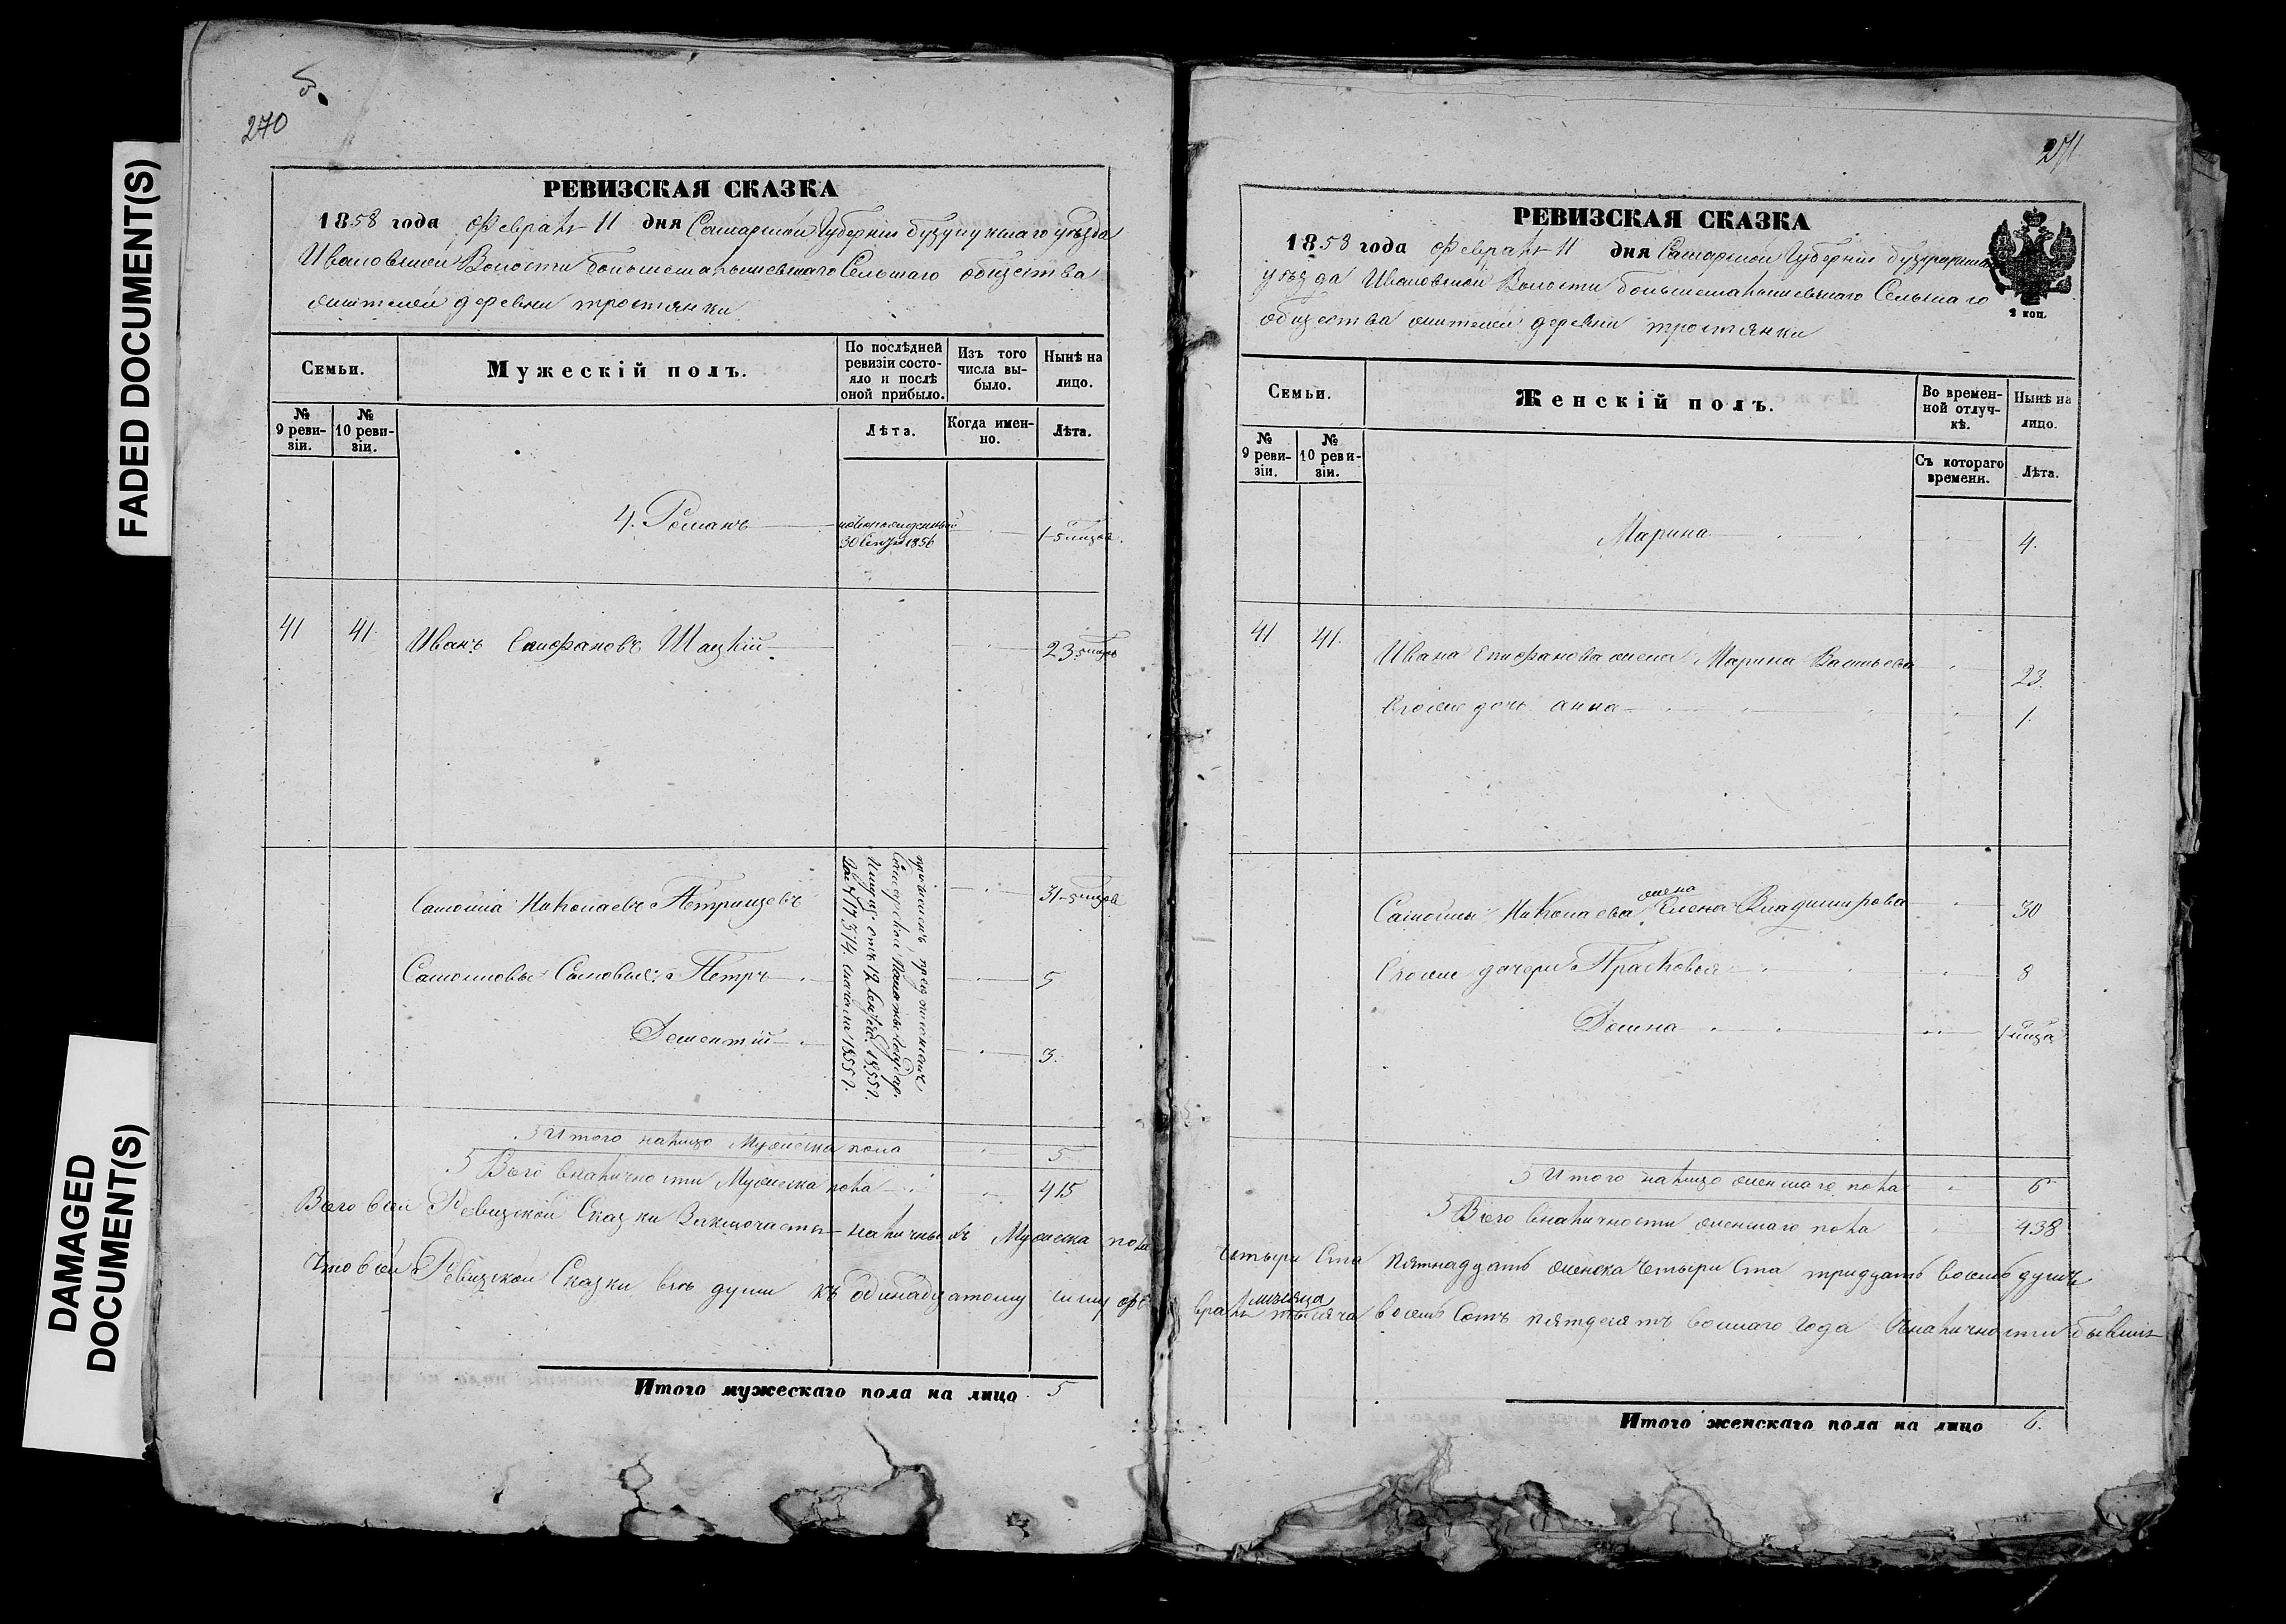 FADED DOCUMENT(S)
DAMAGED
DOCUMENT(S)
270
РЕВИЗСКАЯ СКАЗКА
1858 года Февраля 11 дня Самарской Губернии бузулукскаго уѣзда
Ивановской Волости Сельскаго общества
жителей деревни тростянки
Семьи.
Мужескій полъ.
По послѣдней
ревизіи состо-
яло и послѣ
оной прибыло.
Изъ того
числа вы-
было.
Нынѣ на
лицо.
№
9 реви-
зіи.
№
10 реви-
зіи.
Лѣта.
Когда имен-
но.
Лѣта.
4. Романъ новорожденный
30 1856 1-5 мцов.
41 41. Иванъ Епифановъ Шацкій 23 5 мцовъ
Самойла Николаевъ Петрищевъ 31-5 мцов
Самойловы Сыновья: Петръ 5
Дементій 3.
причисленъ
Самарской Палаты Государ.
Имущ. отъ 12 1855 г.
за № 17,314. сначала 1855 г.
Итого налицо Мужеска пола 5
Всего вналичности Мужеска пола 415
Всего всей Ревизской Сказки Заключается наличныхъ Мужеска пола
Ревизской Сказки всѣ души къ одинадцатому числу фе
Итого мужескаго пола на лицо 5
271
РЕВИЗСКАЯ СКАЗКА
1858 года Февраля 11 дня Самарской Губернии
уѣзда Ивановской Волости Сельскаго
общества жителей деревни тростянки
2 коп.
Семьи.
Женскій полъ.
Во времен-
ной отлуч-
кѣ.
Нынѣ на
лицо.
№
9 реви-
зіи.
№
10 реви-
зіи.
Съ котораго
времени.
Лѣта.
Марина 4.
41 41. Ивана Епифанова жена Марина Васильева 23.
Егоже дочь анна 1.
жена
Самойлы Николаева Елена Владимирова 30
Егоже дочери Прасковья 8
Домна
Итого налицо женскаго пола 6
Всего вналичности женскаго пола 438
четыри Ста пятнадцать женска четыри Ста тридцать восемь душъ
месяца
враля тысяча восемь Сотъ пятдесятъ восмаго года вналичности бывшія
Итого женскаго пола на лицо 6.